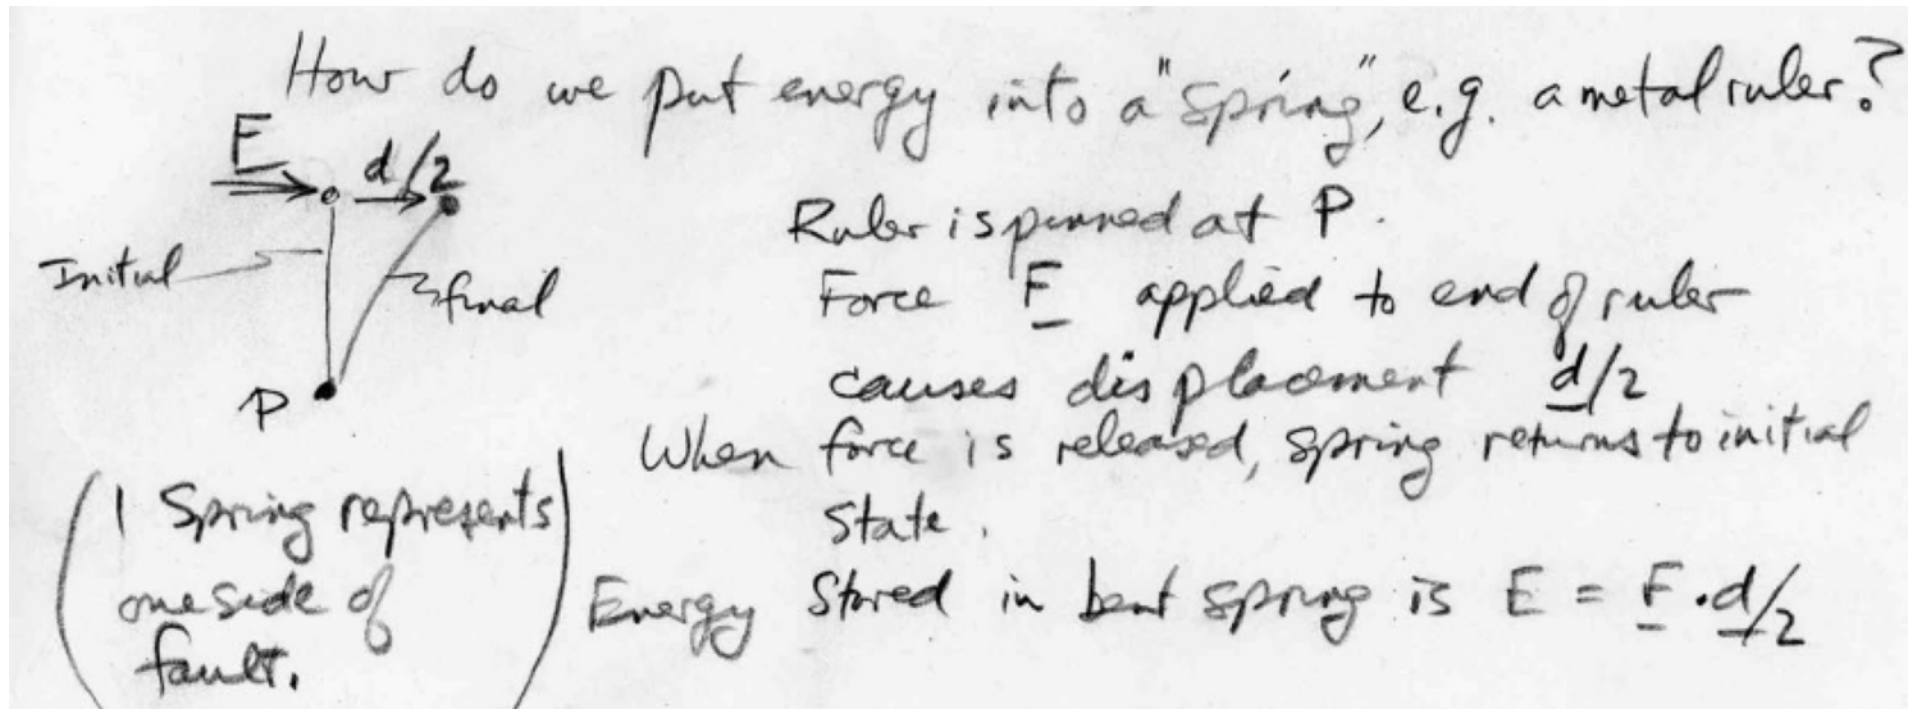 How do we put energy into a "spring", e.g. a metal ruler?
F
d/2
Initial
final
P
Ruler is pinned at P.
Force F applied to end of ruler
causes displacement d/2
When force is released, spring returns to initial
state.
Energy stored in bent spring is E = F · d/2
(1 Spring represents
one side of
fault.)